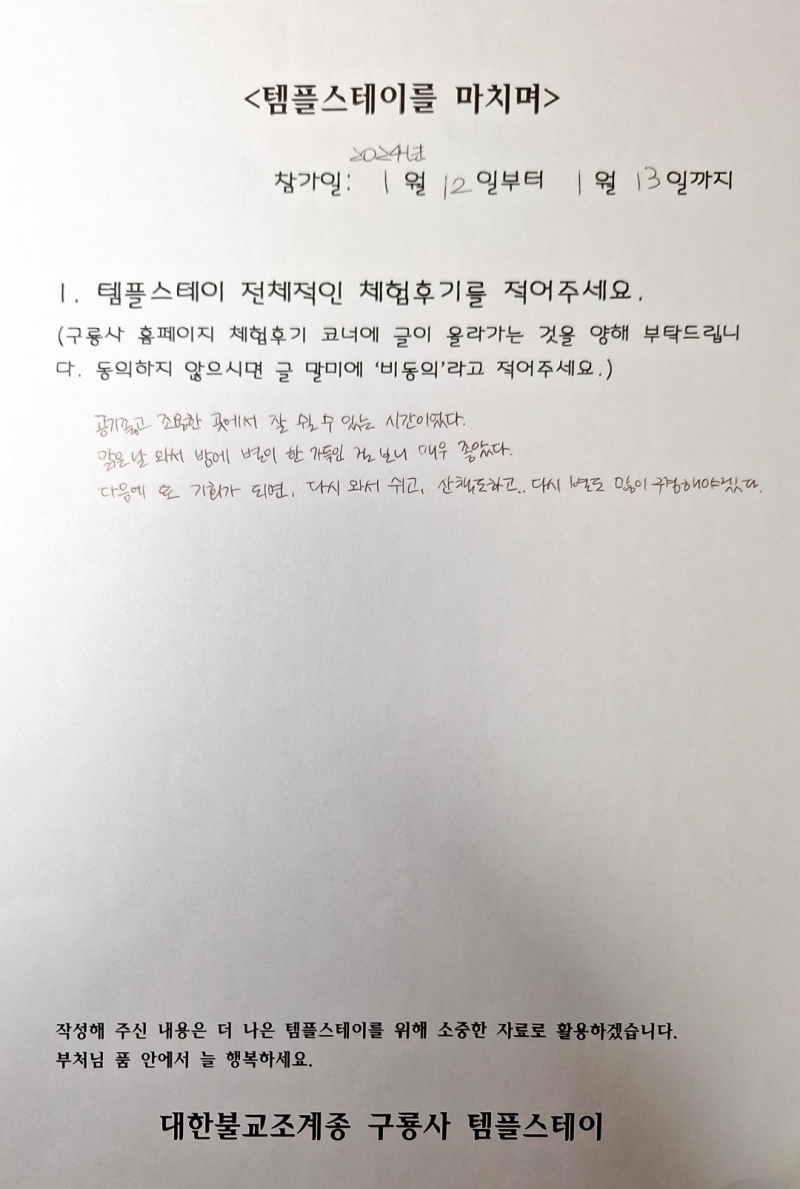 <템플스테이를 마치며>
2024년
참가일: 1 월 12 일부터 1 월 13 일까지
1. 템플스테이 전체적인 체험후기를 적어주세요.
(구룡사 홈페이지 체험후기 코너에 글이 올라가는 것을 양해 부탁드립니
다. 동의하지 않으시면 글 말미에 ‘비동의’라고 적어주세요.)
공기좋고 조용한 곳에서 잘 쉴 수 있는 시간이었다.
맑은날 와서 밤에 별이 한 가득인 걸 보니 매우 좋았다.
다음에 또 기회가 되면, 다시 와서 쉬고, 산책도하고.. 다시 별도 많이 구경해야겠다.
작성해 주신 내용은 더 나은 템플스테이를 위해 소중한 자료로 활용하겠습니다.
부처님 품 안에서 늘 행복하세요.
대한불교조계종 구룡사 템플스테이